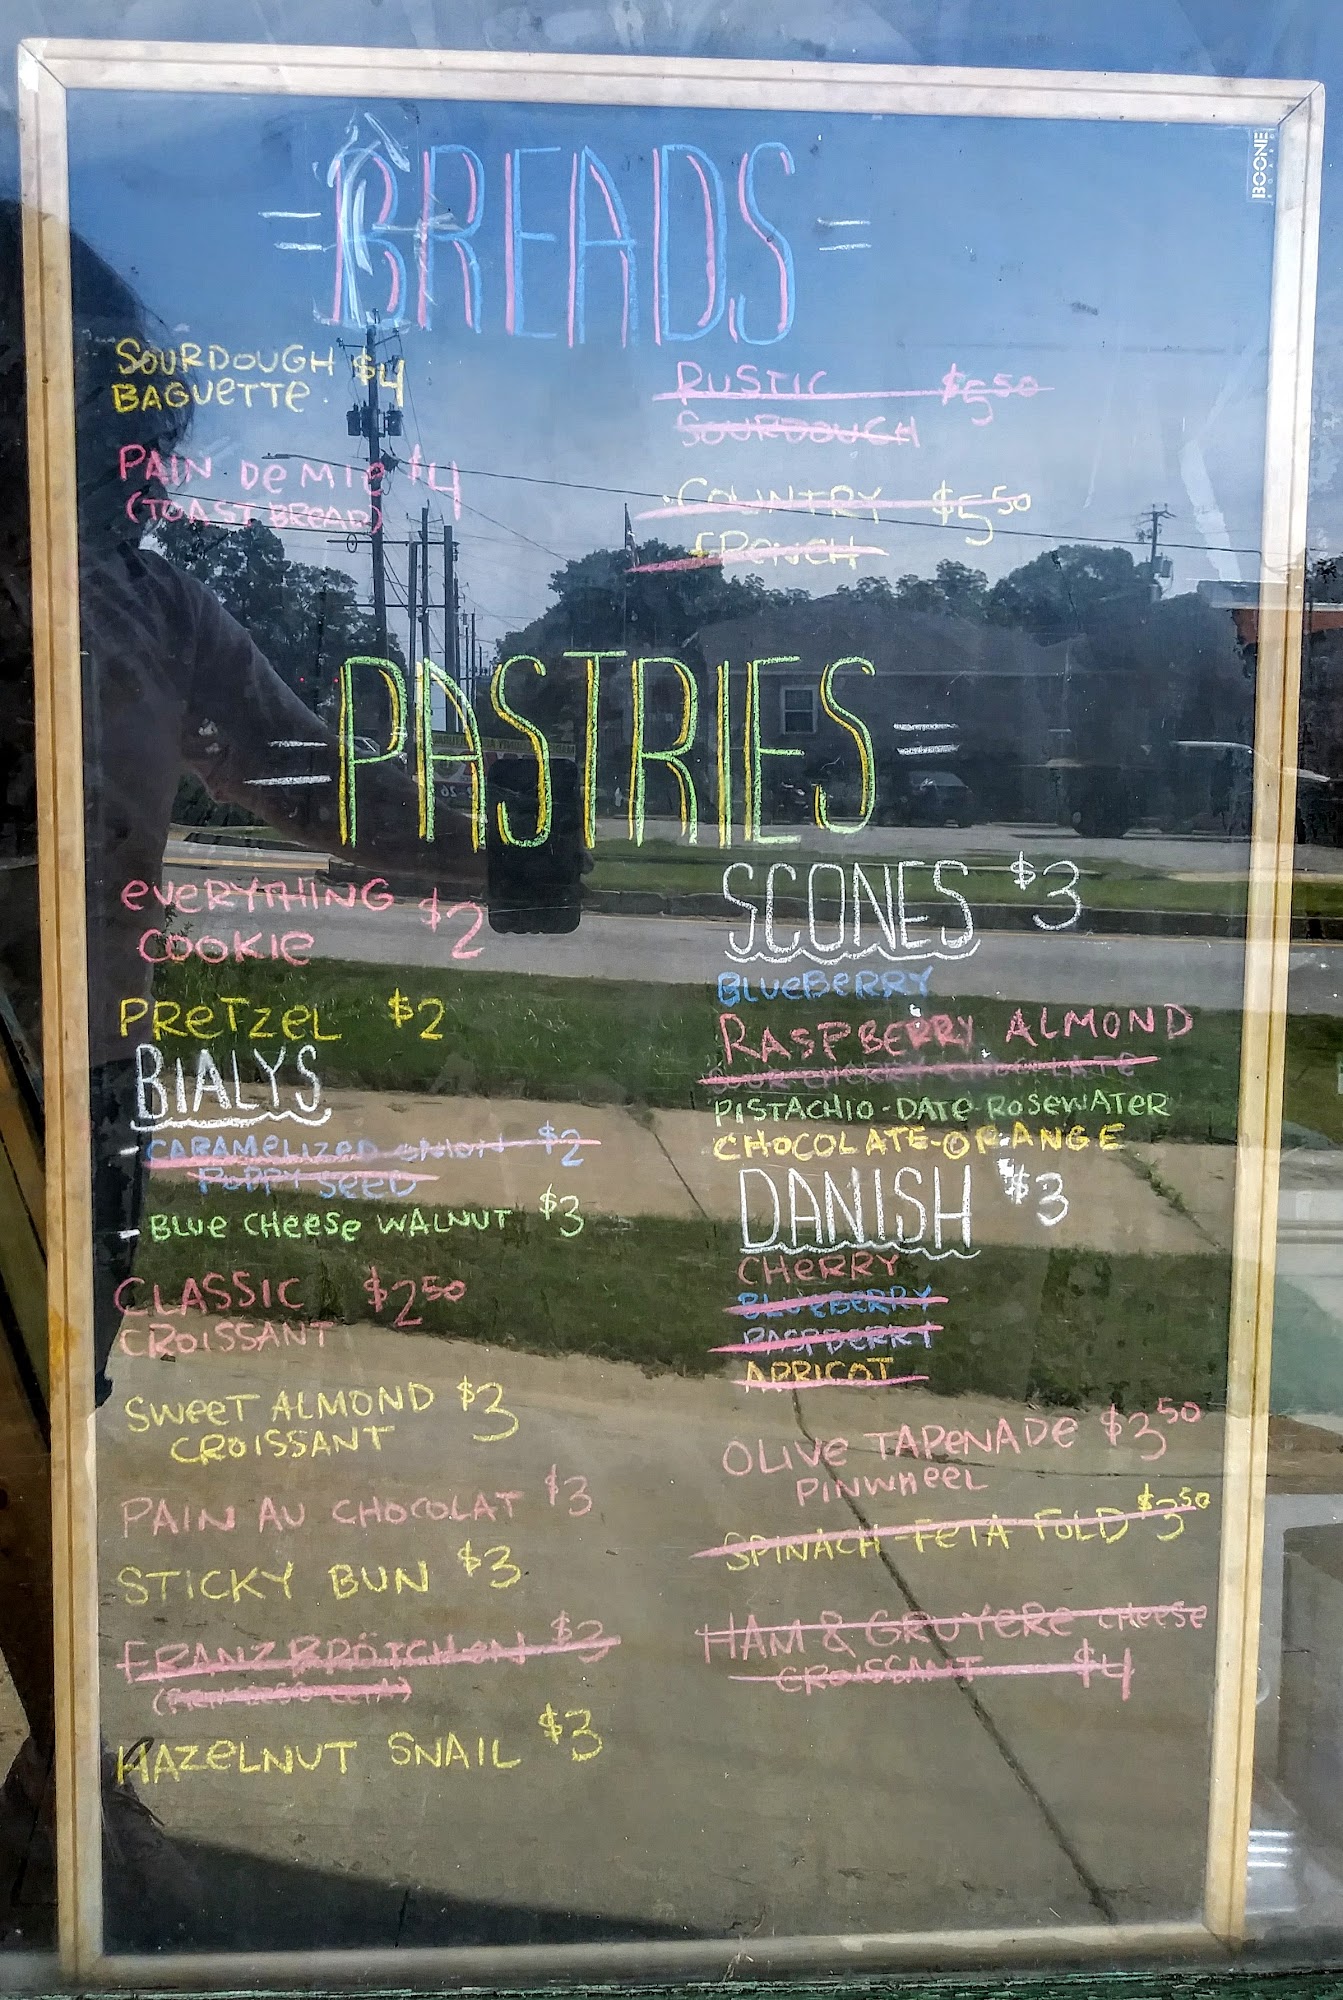 BOONE
BOARD
= BREADS =
SOURDOUGH $4
BAGUETTE
PAIN DE MIE $4
(TOAST BREAD)
RUSTIC $5.50
SOURDOUGH
COUNTRY $5.50
FRENCH
= PASTRIES =
EVERYTHING $2
COOKIE
PRETZEL $2
BIALYS
- CARAMELIZED ONION $2
POPPY SEED
- BLUE CHEESE WALNUT $3
CLASSIC $2.50
CROISSANT
SWEET ALMOND $3
CROISSANT
PAIN AU CHOCOLAT $3
STICKY BUN $3
FRANZBRÖTCHEN $3
HAZELNUT SNAIL $3
SCONES $3
BLUEBERRY
RASPBERRY ALMOND
SOUR CHERRY CHOCOLATE
PISTACHIO-DATE-ROSEWATER
CHOCOLATE-ORANGE
DANISH $3
CHERRY
BLUEBERRY
RASPBERRY
APRICOT
OLIVE TAPENADE $3.50
PINWHEEL
SPINACH-FETA FOLD $3.50
HAM & GRUYERE CHEESE
CROISSANT $4